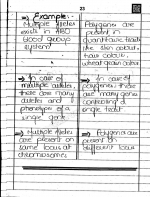 23
⇒ Example:-
Multiple alleles
exists in ABO
blood group
system
Polygenes are
present in
quantitative traits
like skin colour,
hair colour,
wheat grain colour
⇒ In case of
multiple alleles,
there are many
alleles and
phenotypes of a
single gene
⇒ In case of
polygenes, there
are many genes
controlling a
single trait
⇒ Multiple alleles
are present on
same locus of
chromosomes
⇒ Polygenes are
present on
different locus